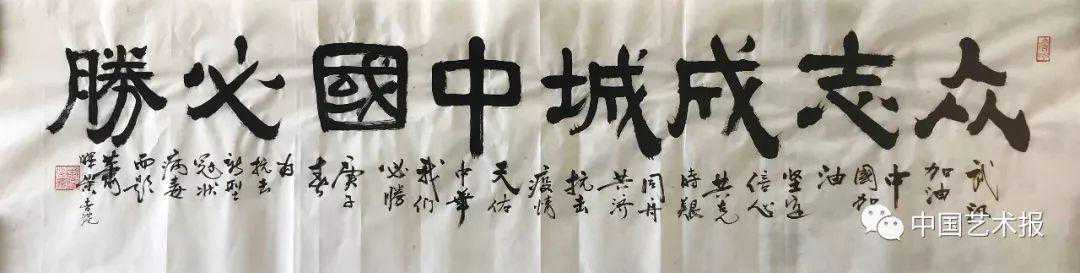 众志成城中國必勝
武汉
加油
中
國加
油
坚定
信心
共克
时艰
同舟
共济
抗击
疫情
天佑
中华
我们
必勝
庚子
春
为
抗击
新型
冠状
病毒
而题
中国艺术报